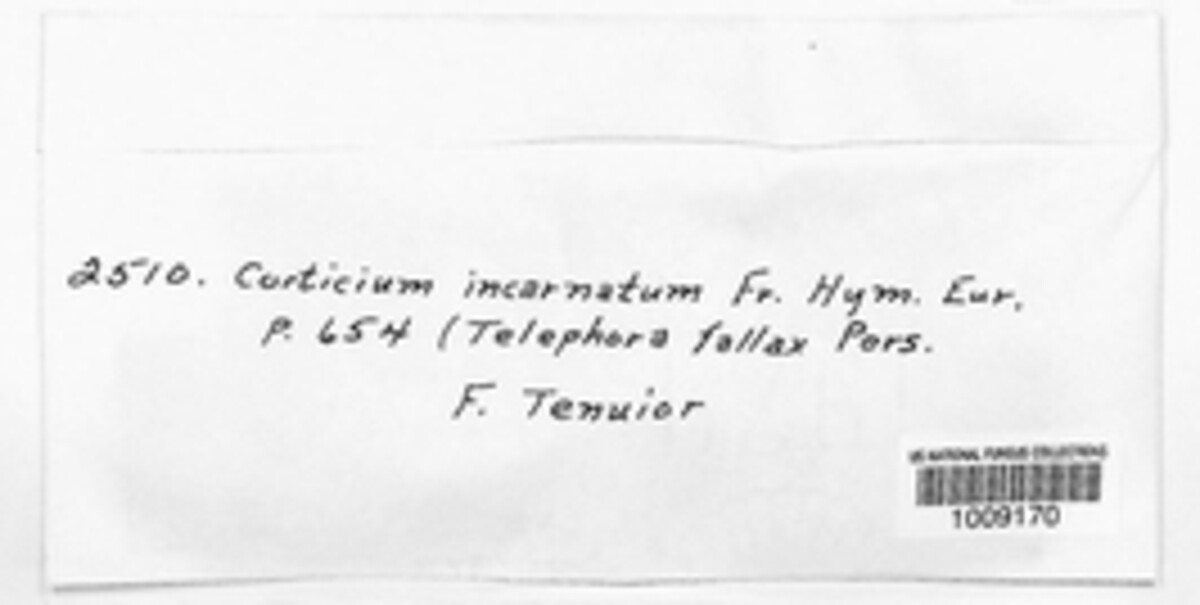 2510. Corticium incarnatum Fr. Hym. Eur.
p. 654 (Telephora fallax Pers.
F. Tenuior
US NATIONAL FUNGUS COLLECTIONS
1009170